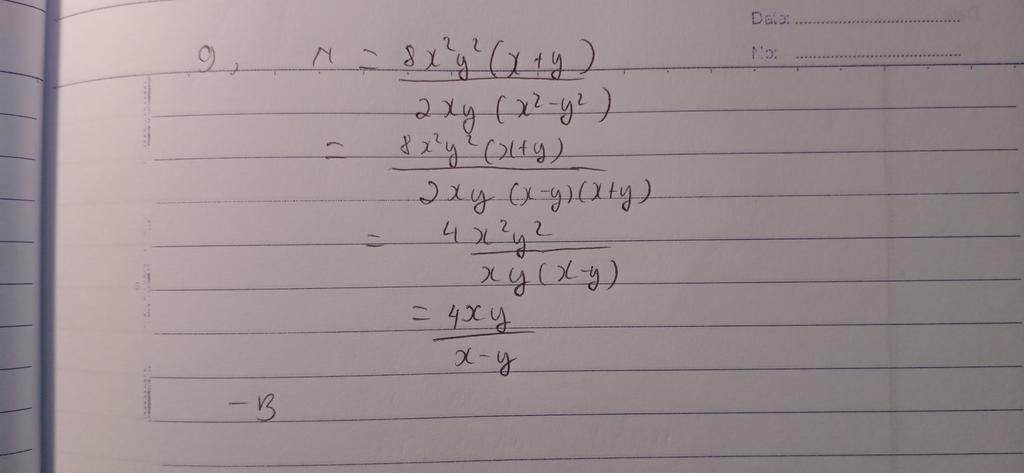 Date: ....................
No: ....................
9, M = 8x²y²(x+y)
2xy (x²-y²)
= 8x²y²(x+y)
2xy (x-y)(x+y)
= 4x²y²
xy(x-y)
= 4xy
x-y
- B